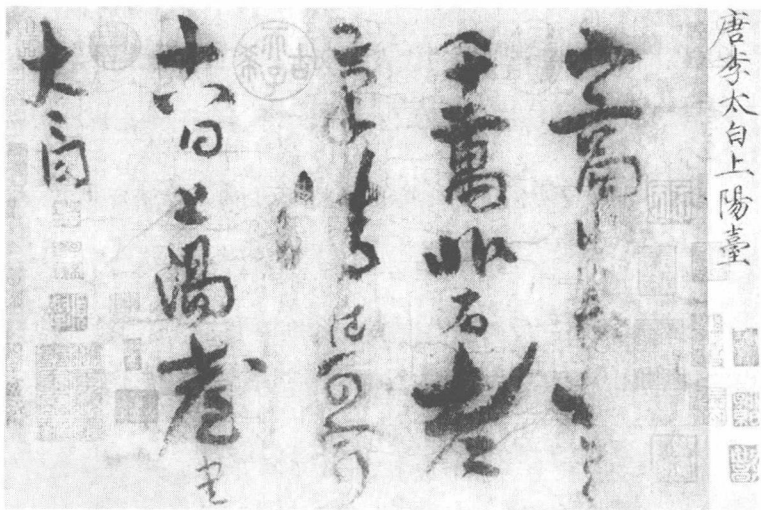 唐李太白上陽臺
山高水長物象
千萬非有老
筆清壯可窮
十八日上陽臺書
太白